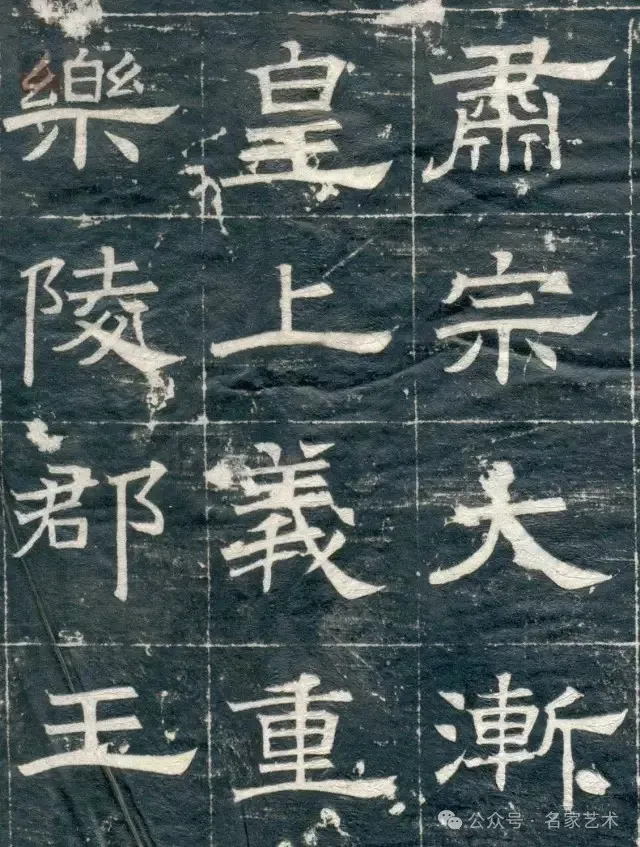 肅宗大漸
皇上義重
樂陵郡王
公众号·名家艺术